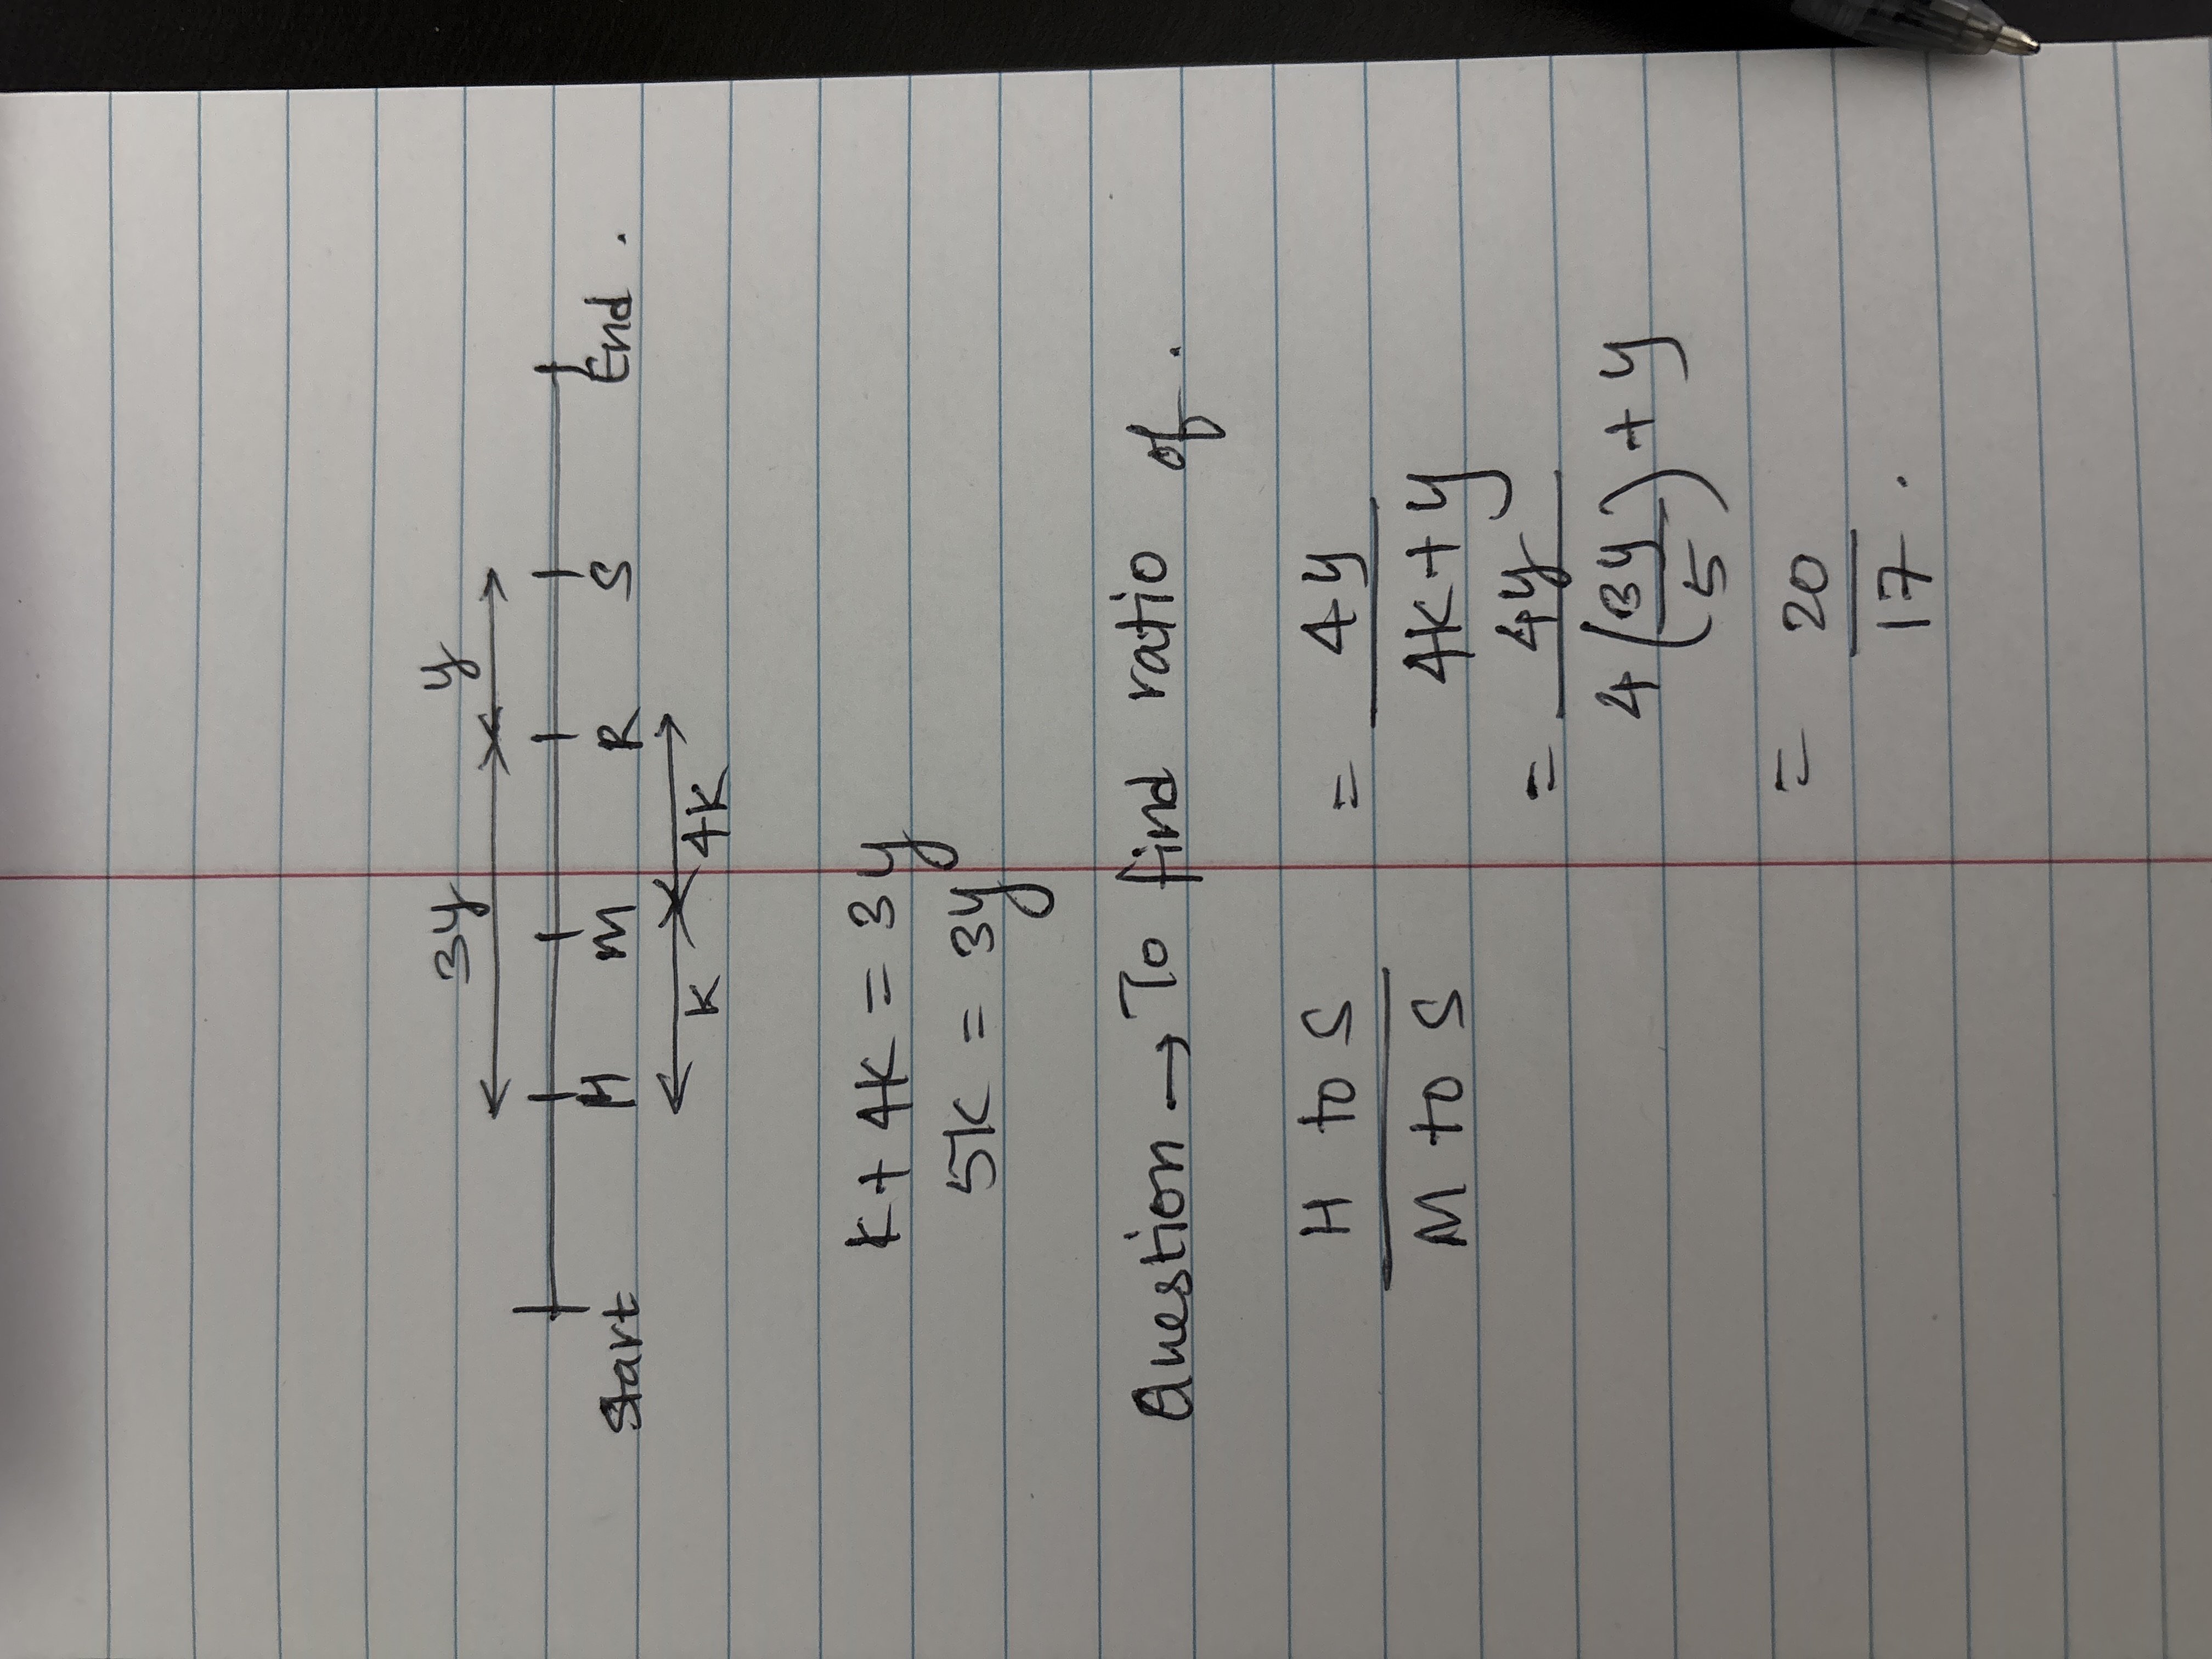 3y y
Start H M R S End.
K 4K
K + 4K = 3y
5K = 3y
Question → To find ratio of.
H to S = 4y
M to S 4K+y
= 4y
4(3y/5) + y
= 20
17.